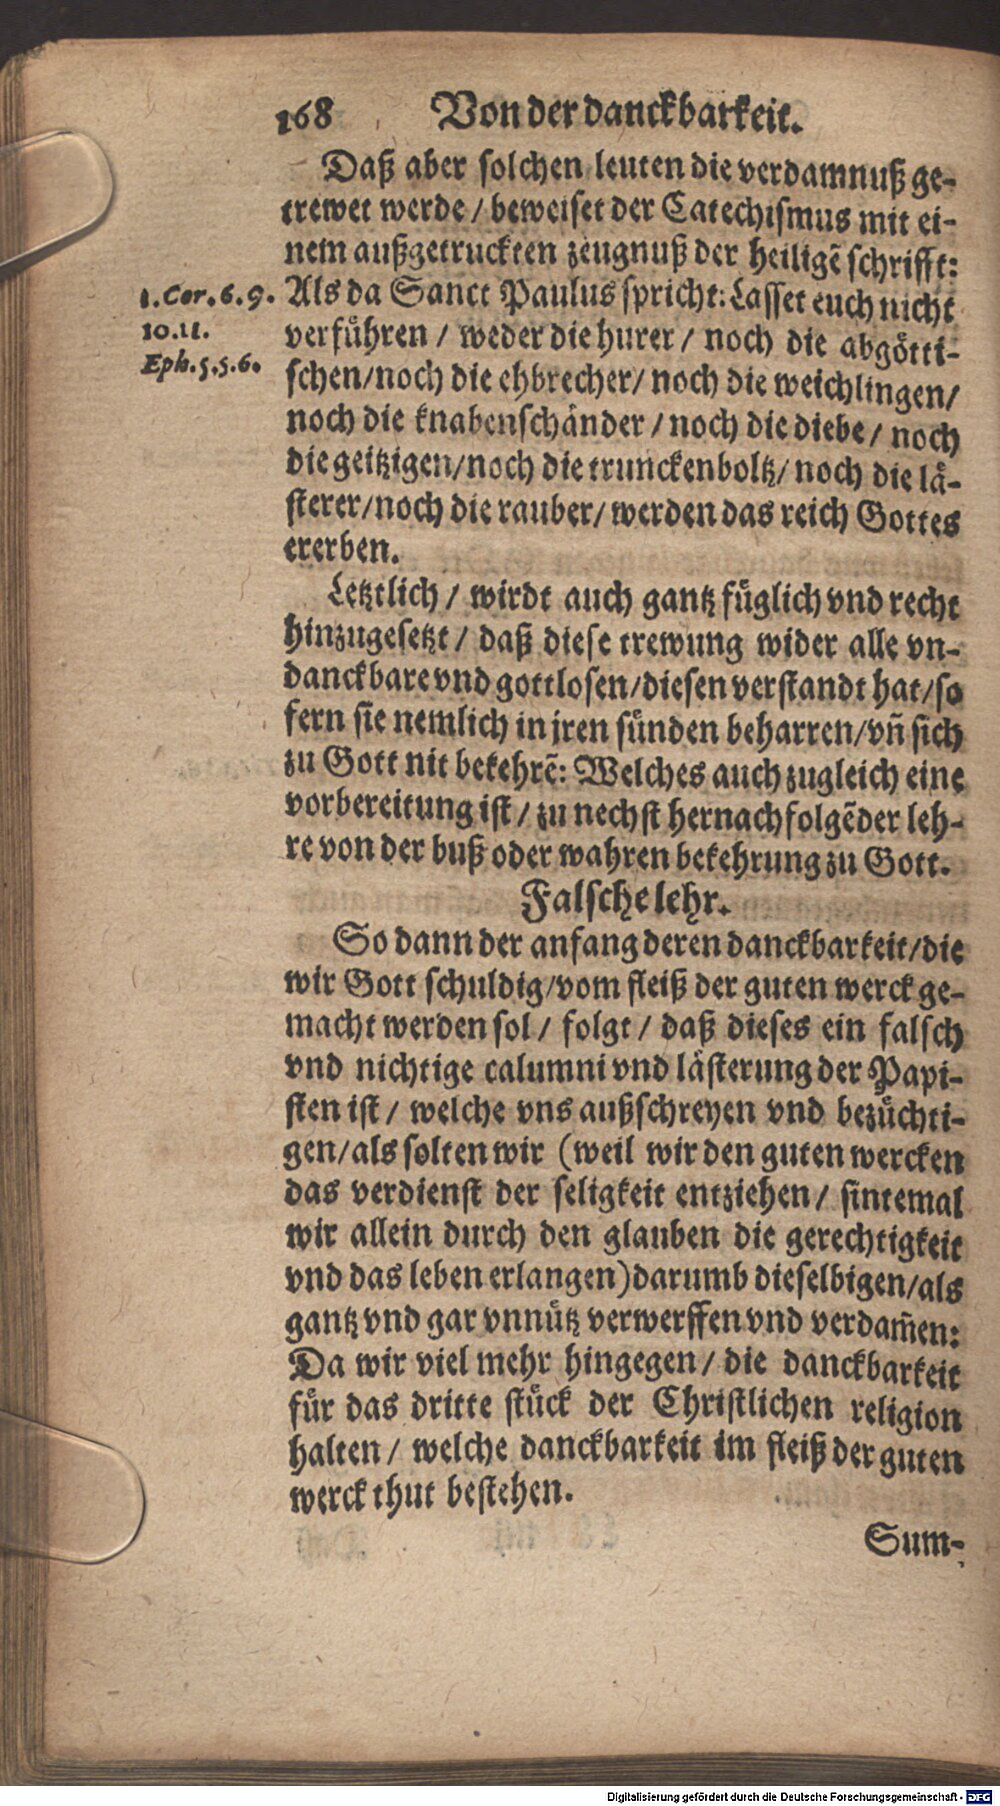 168 Von der danckbarkeit.
Daß aber solchen leuten die verdamnuß ge-
trewet werde / beweiset der Catechismus mit ei-
nem außgetruckten zeugnuß der heiligẽ schrifft:
1. Cor. 6. 9. Als da Sanct Paulus spricht: Lasset euch nicht
10. 11. verführen / weder die hurer / noch die abgötti-
Eph. 5. 5. 6. schen/noch die ehbrecher/ noch die weichlingen/
noch die knabenschänder / noch die diebe / noch
die geitzigen/noch die trunckenboltz/ noch die lä-
sterer/noch die rauber/ werden das reich Gottes
ererben.
Letztlich / wirdt auch gantz füglich vnd recht
hinzugesetzt / daß diese trewung wider alle vn-
danckbare vnd gottlosen/diesen verstandt hat/so
fern sie nemlich in jren sünden beharren/vñ sich
zu Gott nit bekehrẽ: Welches auch zugleich eine
vorbereitung ist / zu nechst hernachfolgẽder leh-
re von der buß oder wahren bekehrung zu Gott.
Falsche lehr.
So dann der anfang deren danckbarkeit/die
wir Gott schuldig/vom fleiß der guten werck ge-
macht werden sol / folgt / daß dieses ein falsch
vnd nichtige calumni vnd lästerung der Papi-
sten ist / welche vns außschreyen vnd bezüchti-
gen/als solten wir (weil wir den guten wercken
das verdienst der seligkeit entziehen / sintemal
wir allein durch den glauben die gerechtigkeit
vnd das leben erlangen) darumb dieselbigen/als
gantz vnd gar vnnütz verwerffen vnd verdam̃en:
Da wir viel mehr hingegen / die danckbarkeit
für das dritte stück der Christlichen religion
halten / welche danckbarkeit im fleiß der guten
werck thut bestehen.
Sum-
Digitalisierung gefördert durch die Deutsche Forschungsgemeinschaft - DFG